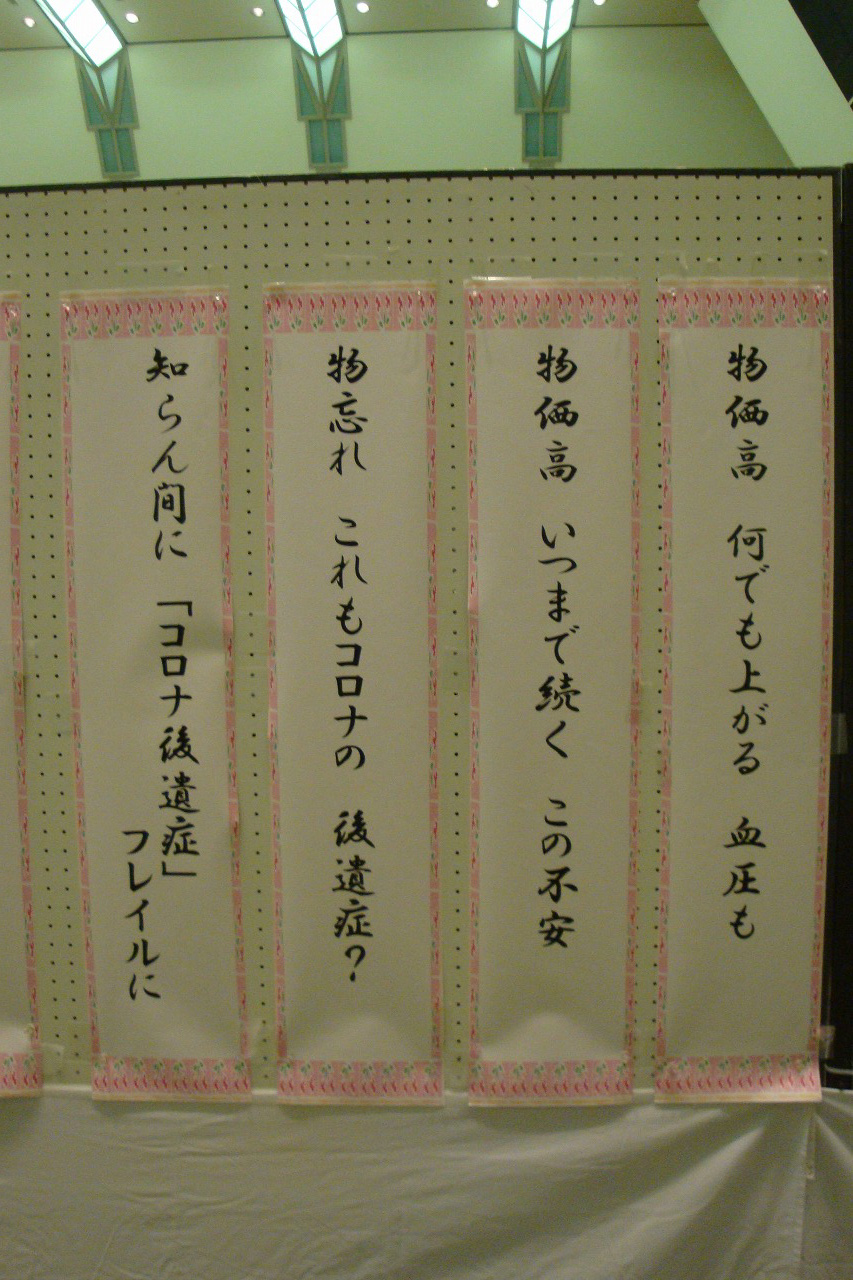 物価高　何でも上がる　血圧も
物価高　いつまで続く　この不安
物忘れ　これもコロナの　後遺症？
知らん間に　「コロナ後遺症」
フレイルに